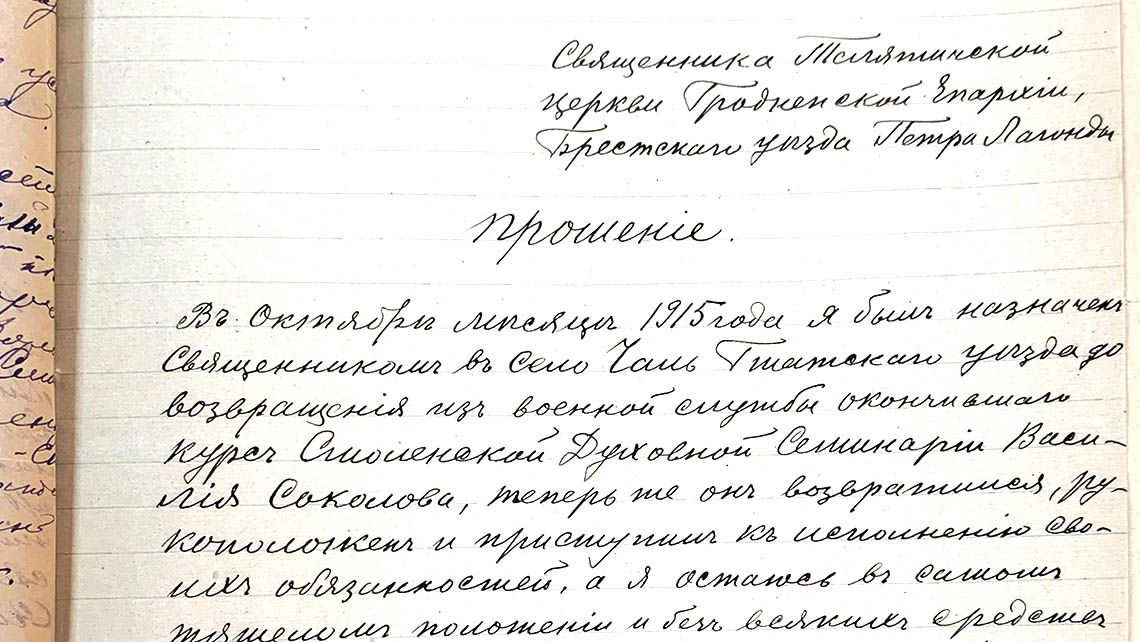 Священника Телятинской
церкви Гродненской Епархіи,
Брестскаго уѣзда Петра Лагоды
Прошеніе.
Въ Октябрѣ мѣсяцѣ 1915 года я былъ назначенъ
священникомъ въ село Чаль Гжатскаго уѣзда до
возвращенія изъ военной службы окончившаго
курсъ Смоленской Духовной Семинаріи Васи-
лія Соколова, теперь же онъ возвратился, ру-
коположенъ и приступилъ къ исполненію сво-
ихъ обязанностей, а я остаюсь въ самомъ
тяжеломъ положеніи и безъ всякихъ средствъ